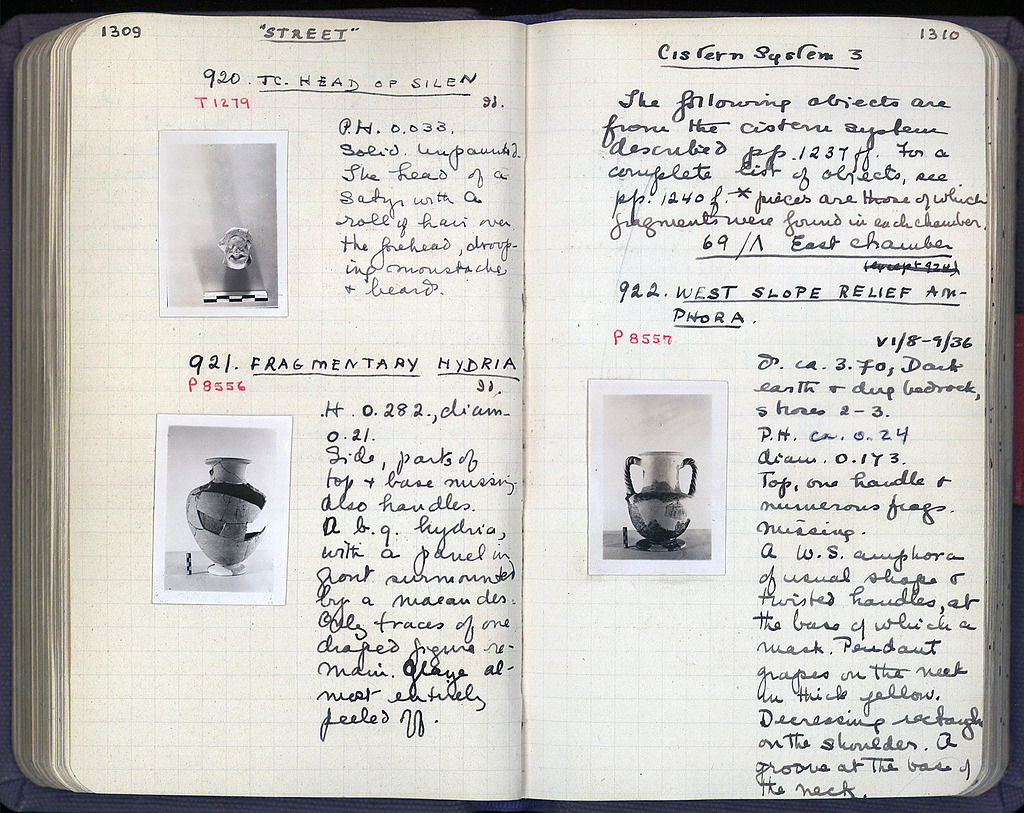 1309
"STREET"
920. TC. HEAD OF SILEN
T 1279
id.
P.H. 0.033.
Solid. Unpainted.
The head of a
Satyr with a
roll of hair over
the forehead, droop-
ing moustache
+ beard.
921. FRAGMENTARY HYDRIA
P 8556
id.
H. 0.282., diam.
0.21.
Side, parts of
top + base missing
also handles.
A b.g. hydria,
with a panel in
front surmounted
by a maeander.
Only traces of one
draped figure re-
main. Glaze al-
most entirely
peeled off.
1310
Cistern System 3
The following objects are
from the cistern system
described pp. 1237 ff. For a
complete list of objects, see
pp. 1240 f. * pieces are those of which
fragments were found in each chamber.
69/Λ East chamber
(except 924)
922. WEST SLOPE RELIEF AM-
PHORA.
P 8557
VI/8-9/36
D. ca. 3.70, Dark
earth + dug bedrock,
stones 2-3.
P.H. ca. 0.24
diam. 0.173.
Top, one handle +
numerous frags.
missing.
A W.S. amphora
of usual shape +
twisted handles, at
the base of which a
mask. Pendant
grapes on the neck
in thick yellow.
Decreasing rectangles
on the shoulder. A
groove at the base of
the neck.